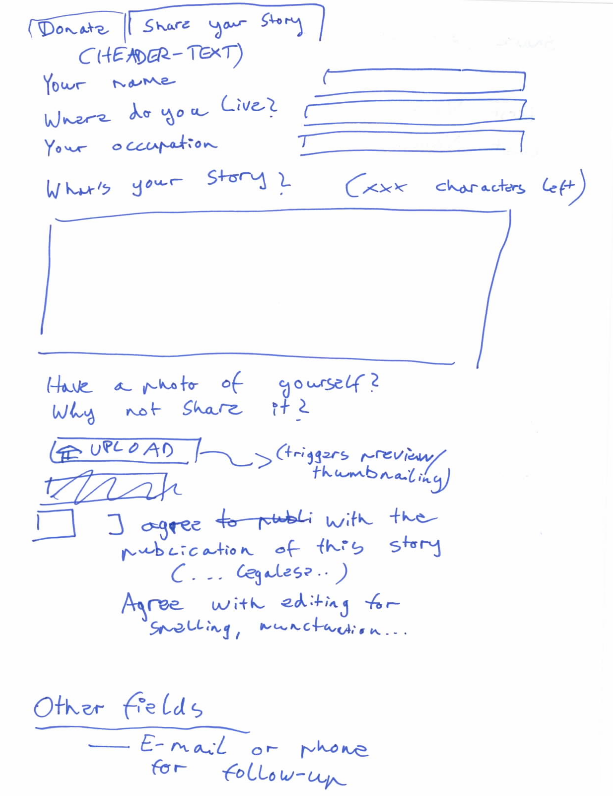 Donate Share your Story
(HEADER-TEXT)
Your name
Where do you Live?
Your occupation
What's your Story? (xxx characters left)
Have a photo of yourself?
Why not share it?
UPLOAD (triggers preview/
thumbnailing)
I agree to publi with the
publication of this story
(... legalese..)
Agree with editing for
spelling, punctuation...
Other fields
— E-mail or phone
for follow-up